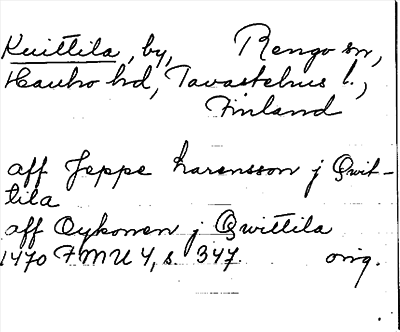 Kuittila, by, Rengo sn,
Hauho hd, Tavastehus l.,
Finland
aff Jeppe Larensson j Qwit-
tila
aff Oykonen j Qwittila
1470 FMU 4, s. 347. orig.